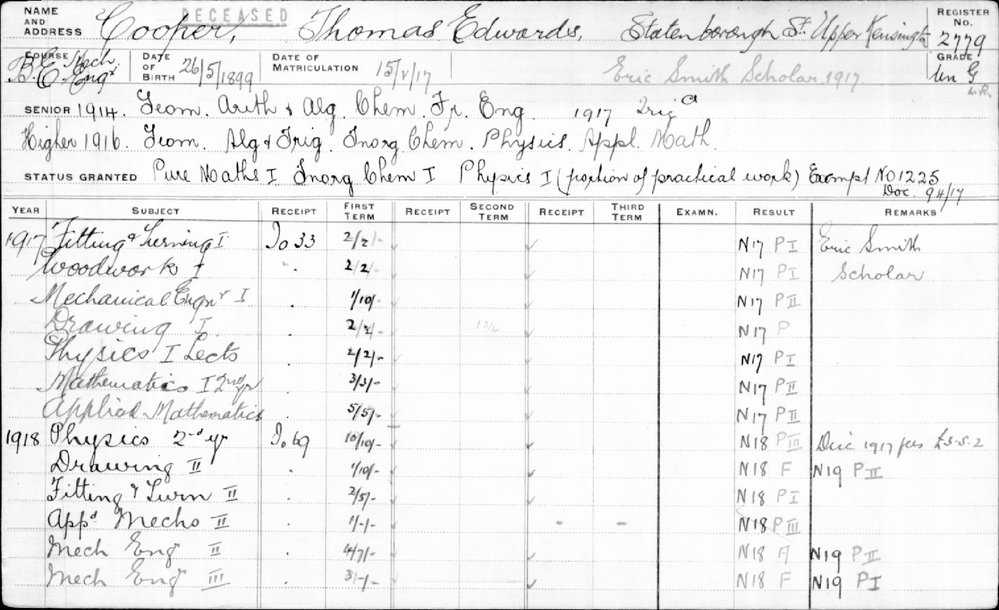 NAME AND ADDRESS DECEASED Cooper, Thomas Edwards. Statenborough St. Upper Kensington REGISTER No. 2779
COURSE B.E. Mech. Engr DATE OF BIRTH 26/5/1899 DATE OF MATRICULATION 15/1/17 Eric Smith Scholar 1917 GRADE Un G
SENIOR 1914. Geom. Arith & Alg. Chem. Fr. Eng. 1917 Trig
Higher 1916. Geom. Alg & Trig. Inorg. Chem. Physics. Appl. Math.
STATUS GRANTED Pure Maths I Inorg Chem I Physics I (portion of practical work) Exempt No 1225
Doc. 94/17
YEAR SUBJECT RECEIPT FIRST TERM RECEIPT SECOND TERM RECEIPT THIRD TERM EXAMN. RESULT REMARKS
1917 Fitting & Turning I Io 33 2/2/- N17 PI Eric Smith
Woodwork I 2/2/- N17 PI Scholar
Mechanical Engnr I 1/10/- N17 PII
Drawing I 2/2/- N17 P
Physics I Lects 2/2/- N17 PI
Mathematics I 2nd yr 3/3/- N17 PII
Applied Mathematics 5/5/- N17 PII
1918 Physics 2nd yr Io 69 10/10/- N18 PIII Due 1917 fees £5-5-2
Drawing II 1/10/- N18 F N19 PII
Fitting & Turn II 2/5/- N18 PI
Appd Mechs II 1/-/- N18 PIII
Mech Eng II 4/7/- N18 F N19 PII
Mech Eng III 3/-/- N18 F N19 PI